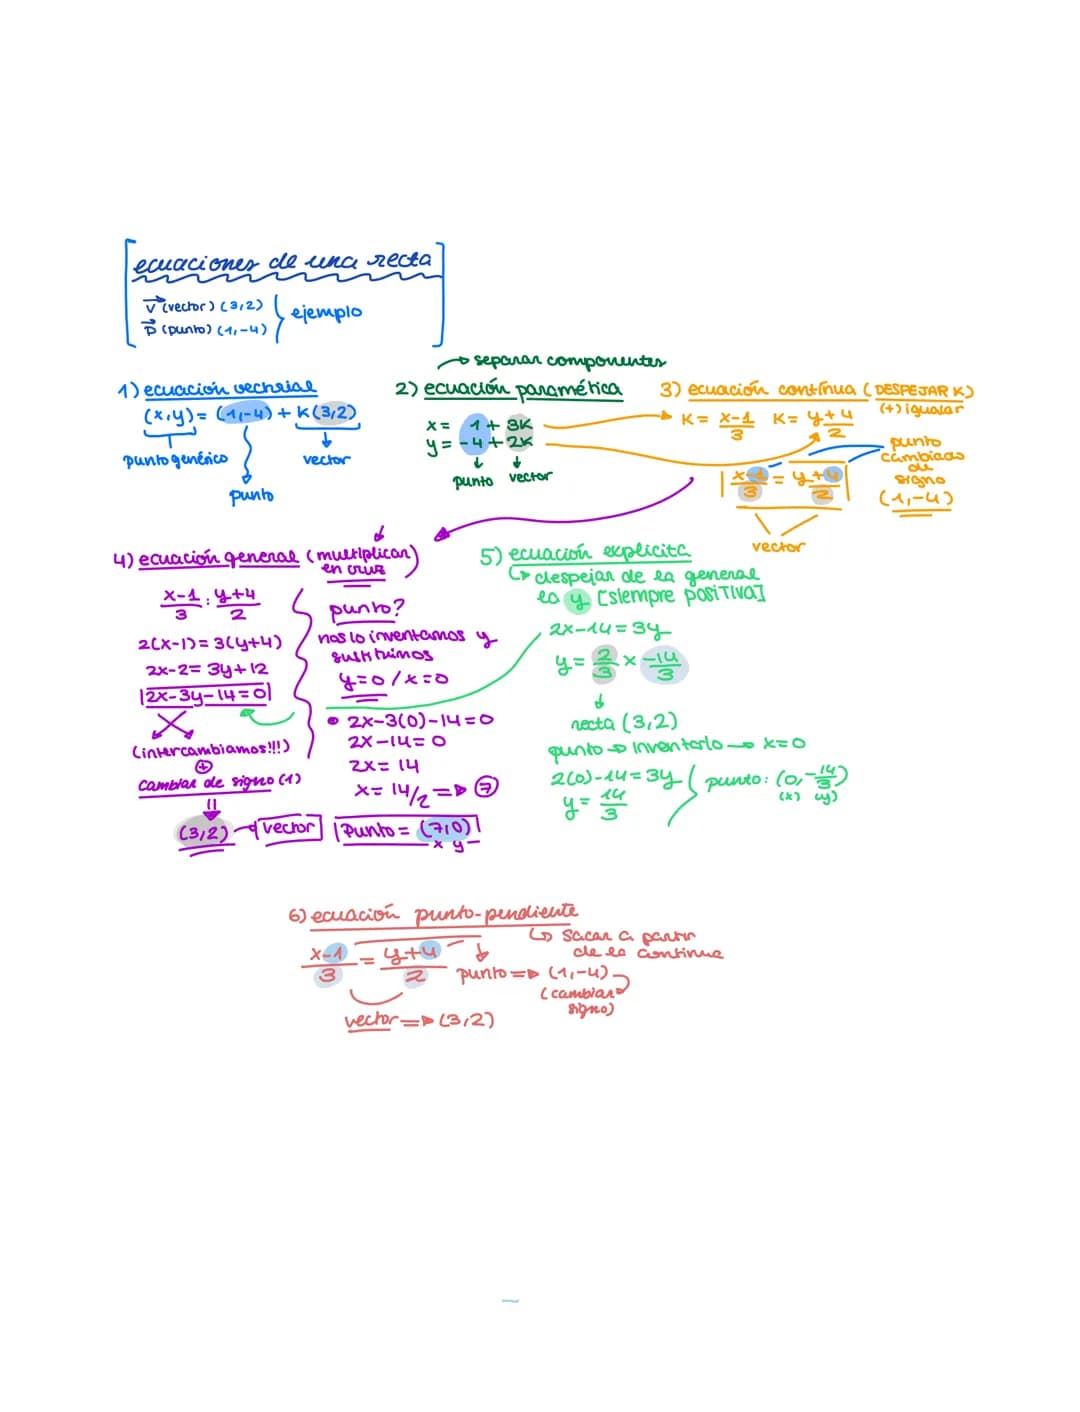 ecuaciones de una recta
v (vector) (3,2)
p (punto) (1,-4)
ejemplo
1) ecuación vectorial
(x,y) = (1,-4) + k(3,2)
punto genérico
vector
punto
separar componentes
2) ecuación paramética
x = 1 + 3k
y = -4 + 2k
punto vector
3) ecuación contínua (DESPEJAR K)
(+) igualar
k = x-1/3 k = y+4/2
x-1/3 = y+4/2
punto
cambiado
de
signo
(1,-4)
vector
4) ecuación general (multiplicar
en cruz)
x-1/3 : y+4/2
2(x-1) = 3(y+4)
2x-2 = 3y+12
2x-3y-14=0
(intercambiamos!!!)
+
cambiar de signo (1)
(3,2) vector
punto?
nos lo inventamos y
sustituimos
y=0 / x=0
2x-3(0)-14=0
2x-14=0
2x= 14
x= 14/2 => 7
Punto = (7,0)
x y
5) ecuación explícita
despejar de la general
la y [siempre POSITIVA]
2x-14=3y
y= 2/3 x -14/3
recta (3,2)
punto → inventarlo → x=0
2(0)-14=3y
y= 14/3
punto: (0,-14/3)
(x) (y)
6) ecuación punto-pendiente
Sacar a partir
de la continua
x-1/3 = y+4/2
punto => (1,-4)
(cambiar
signo)
vector => (3,2)